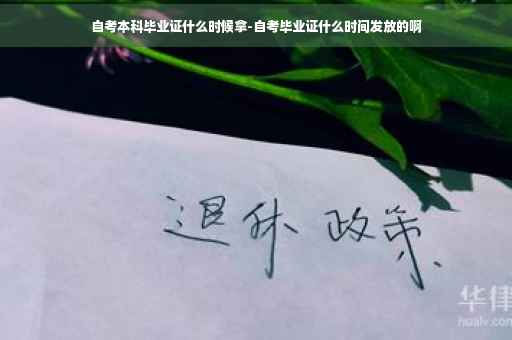 自考本科毕业证什么时候拿-自考毕业证什么时间发放的啊
退休 政策
华律
hualv.com